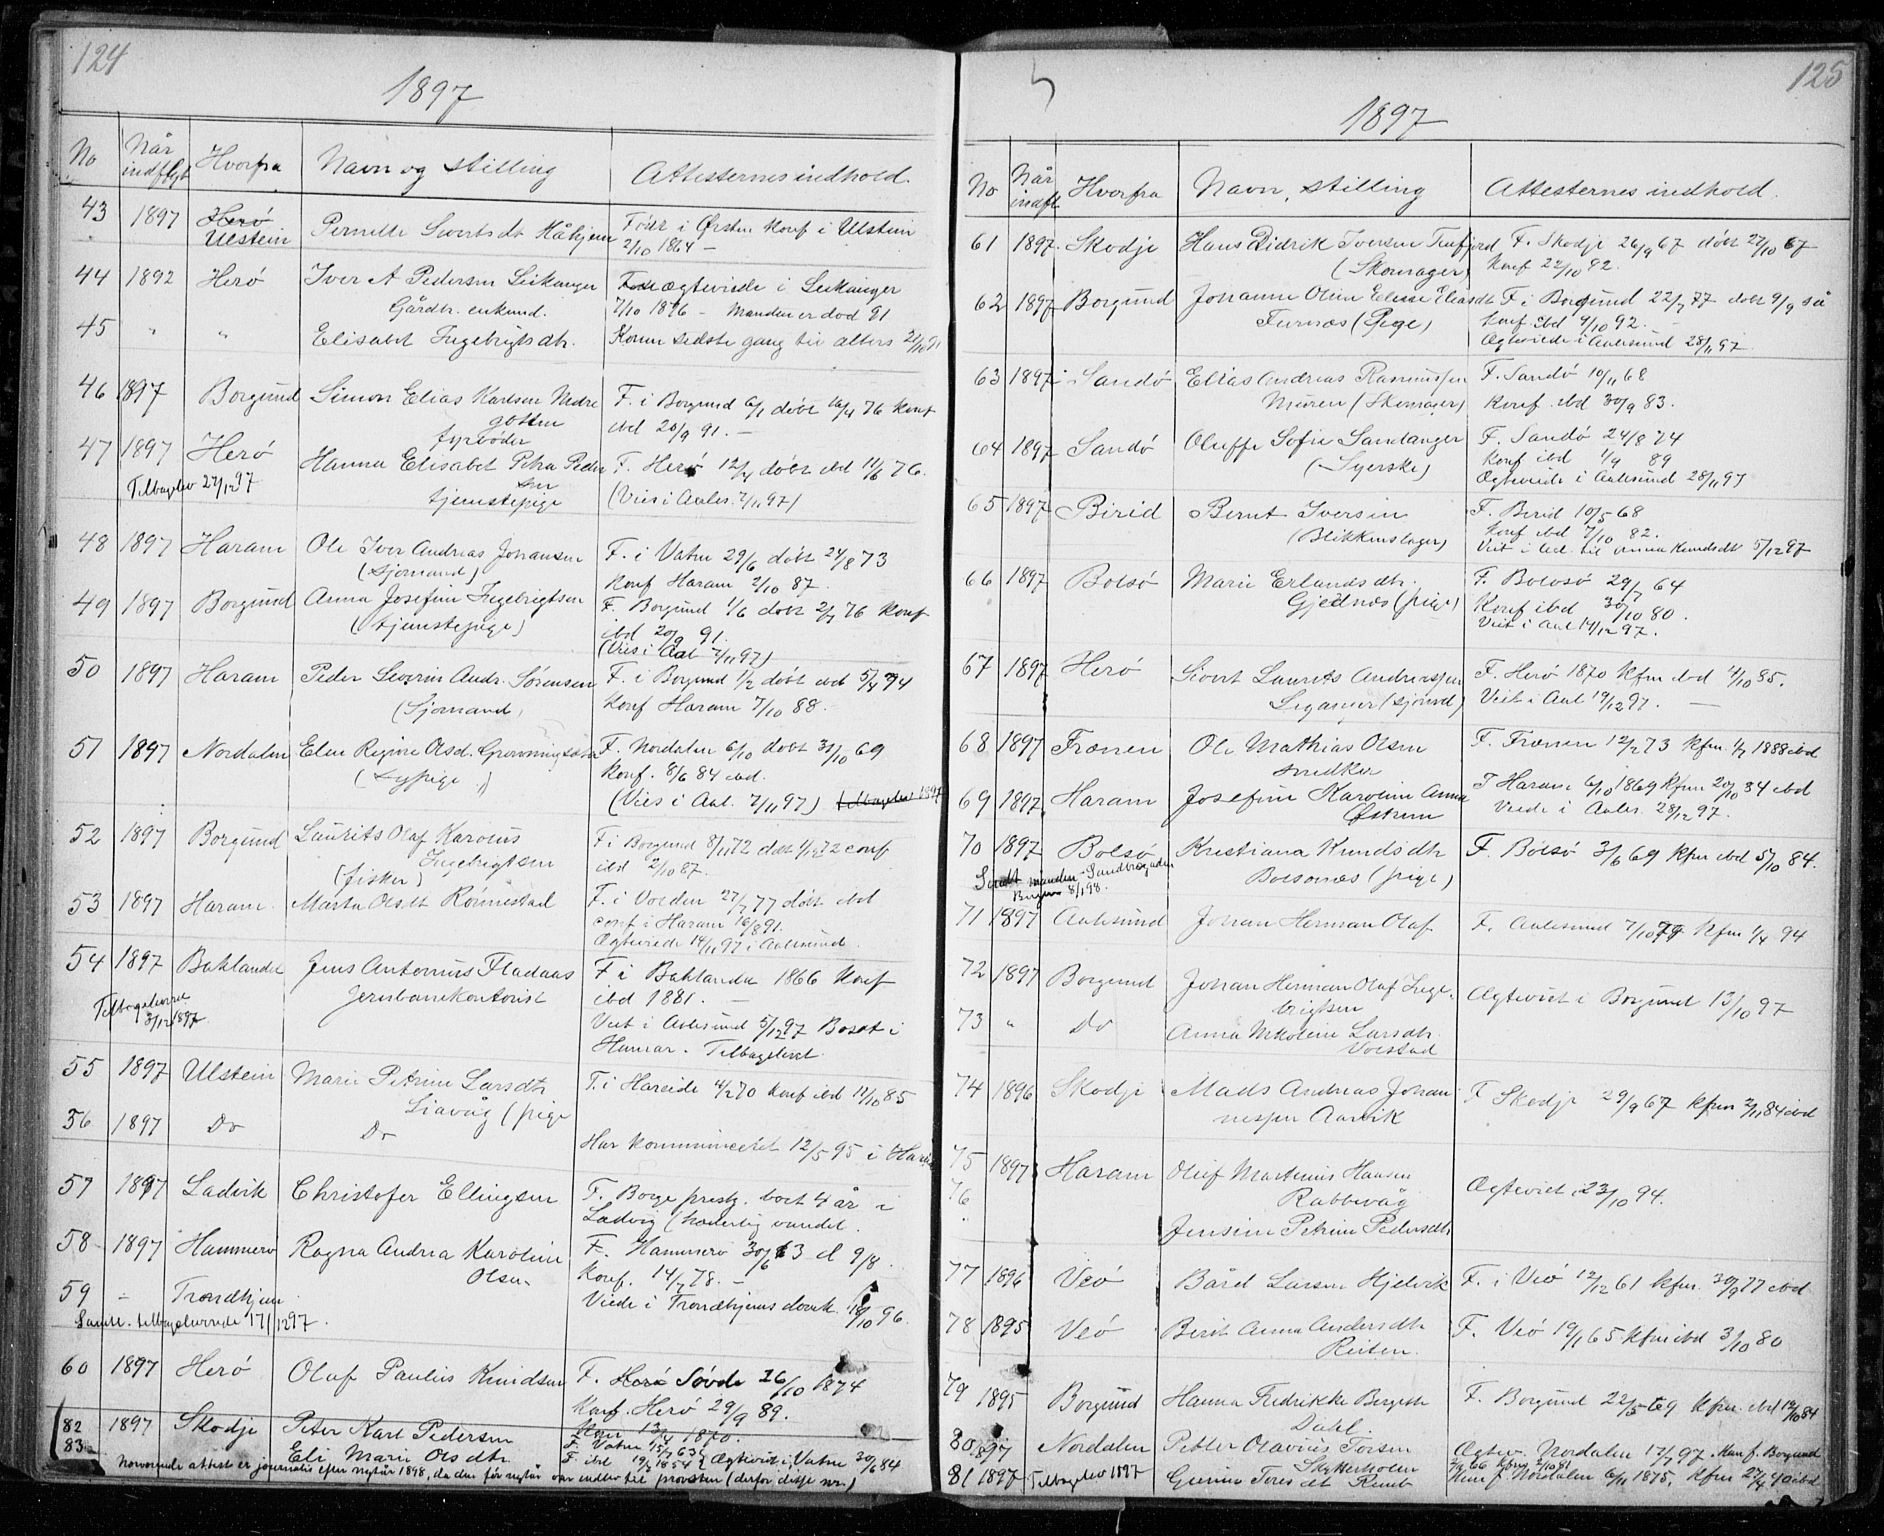 124
1897
No Når indflyt Hvorfra Navn og stilling Attesternes indhold.
43 1897 Herö Ulstein Pernille Sivertsdt Håhjem Födt i Örsten Konf i Ulstein
2/10 1864 –
44 1892 Herö Iver A Pedersen Leikanger Födt Ægteviede i Leikanger
Gårdbr. enkemd. 7/10 1876 – Manden er död 91
45 " " Elisabet Ingebrigtsdtr. Konen sidste gang til alters
46 1897 Borgund Simon Elias Karlsen Medre F. i Borgund 6/1 döbt 16/4 76 Konf
gotten ibd 20/9 91. –
fyrböder
47 1897 Herö Hanna Elisabet Petra Peder F. Herö 12/4 döbt ibd 11/6 76.
sen
Tilbagelev 27/12 97 tjenstepige (Vies i Aales. 7/11 97)
48 1897 Haram Ole Iver Andreas Johansen F. i Vatne 29/6 döbt 24/8 73
(sjömand) Konf Haram 2/10 87.
49 1897 Borgund Anna Josefine Ingebrigtsen F. Borgund 1/6 döbt 2/7 76 Konf
(tjenstepige) ibd 20/9 91.
(Vies i Aal 7/11 97)
50 1897 Haram Peder Severin Andr. Sörensen F. i Borgund 1/2 döbt ibd 5/4 74
(Sjömand) Konf Haram 7/10 88.
51 1897 Nordalen Elen Regine Olsd. F. Nordalen 6/10 döbt 31/10 69
(Sypige) Konf. 8/6 84 ibd.
(Vies i Aal. 7/11 97) tilbagelev 1897
52 1897 Borgund Laurits Olaf Karolus F i Borgund 8/11 72 döbt 1/12 72 conf
Ingebrigtsen ibd 2/10 87.
(fisker)
53 1897 Haram Marta Olsdt Rönnestad F. i Volden 27/7 77 döbt ibd
conf i Haram 16/8 91.
Ægteviede 14/11 97 i Aalesund
54 1897 Baklandet Jens Antonius Fladaas F i Baklandet 1866 Konf
Jernbanekontorist ibd 1881. –
Tilbageleveret 3/12 1897. Viet i Aalesund 5/12 97 Bosat i
Hamar. Tilbageleveret
55 1897 Ulstein Marie Petrine Larsdtr F. i Hareide 4/2 70 Konf ibd 11/10 85
Liavåg (pige
56 1897 Do Do
Har kommuniceret 12/5 95 i
57 1897 Ladvik Christofer Ellingsen F. Borge prestg. boet 4 år i
Ladvig (hæderlig vandel.
58 1897 Hammerö Ragna Andrea Karoline F. Hammerö 30/6 63 d 9/8
Olsen Konf. 14/7 78. –
59 – Trondhjem Viede i Trondhjems domk. 18/10 96.
Samtl. tilbageleverede 17/12 97.
60 1897 Herö Olaf Paulus Knudsen F. Herö Sövde 26/10 1874
Konf. Herö 29/9 89.
82 1897 Skodje Peter Karl Pedersen
83 Eli Marie Olsdtr Ægteviet i Vatne 30/6 84
Norværende attester er journaliseret efter nytår 1898, da de för nytår var indlev til provsten (derfor disse nr.)
125
1897
No Når indfl Hvorfra Navn, stilling Attesternes indhold.
61 1897 Skodje Hans Didrik Iversen Tenfjord F. Skodje 26/9 67 döbt 27/10 67
(Skomager) Konf 22/10 82.
62 1897 Borgund Johanne Oline Elisse Eliasdt F i Borgund 22/7 77 döbt 9/9 så
Furnæs (Pige) Konf ibd 9/10 92.
Ægteviede i Aalesund 28/11 97
63 1897 Sandö Elias Andreas Rasmussen F. Sandö 10/11 68
Muren (Skomager) Konf. ibd 30/9 83.
64 1897 Sandö Oluffe Sofie Sandanger F. Sandö 24/8 74
(Syerske) Konf ibd 1/9 89
Ægteviede i Aalesund 28/11 97
65 1897 Birid Bernt Iversen F. Birid 10/5 68
(Blikkenslager) Konf ibd 7/10 82.
Viet i Aal. til Anna Knudsdt 5/12 97
66 1897 Bolsö Marie Erlandsdtr. F. Bolsö 29/7 64
Gjednæs (pige) Konf ibd 30/10 80.
Viet i Aal 14/12 97.
67 1897 Herö Sivert Laurits Andreassen F. Herö 1870 Kfm ibd 4/10 85.
(sjömd) Viet i Aal 19/12 97. –
68 1897 Frænen Ole Mathias Olsen F. Frænen 12/2 73 kfm. 1/7 1888 ibd
snedker
69 1897 Haram Josefine Karoline Anna F Haram 6/10 1869 Kfm 20/10 84 ibd
Östrem Viede i Aales. 28/12 97.
70 1897 Bolsö Kristiana Knudsdtr F. Bolsö 3/6 69 kfm ibd 5/10 84.
Bolsönæs (pige)
Sendt manden – Sandbrogaden
Bergen 8/1 98.
71 1897 Aalesund Johan Herman Olaf F. Aalesund 7/10 79 kfm 1/4 94
72 1897 Borgund Johan Herman Olaf Inge-
brigtsen Ægteviet i Borgund 13/10 97
73 " Do Anna Nikoline Larsdtr.
Volstad
74 1896 Skodje Mads Andreas Johan F Skodje 29/9 67 kfm 2/11 84 ibd
nessen Aarvik
75 1897 Haram Oluf Martinus Hansen
Rabbevåg Ægteviet i 23/10 94.
76
Jensine Petrine Pedersdtr
77 1896 Veö Bård Larsen Hjelvik F. i Veö 12/12 61 kfm. 30/9 77 ibd
78 1895 Veö Berit Anna Andersdtr F. Veö 19/1 65 kfm ibd 3/10 80
Reiten.
79 1895 Borgund Hanna Fredrikke Bergith F. Borgund 22/5 69 kfm. ibd 12/10 84
Dahl
80 1897 Nordalen Petter Olavius Torsen Ægtev. Nordalen 17/7 97. Konf. Borgund
Skytterholm
81 1897 Tilbagelev 1897 Gurine Toresdt F. Nordalen 6/11 1875, kfm 27/4 90 ibd